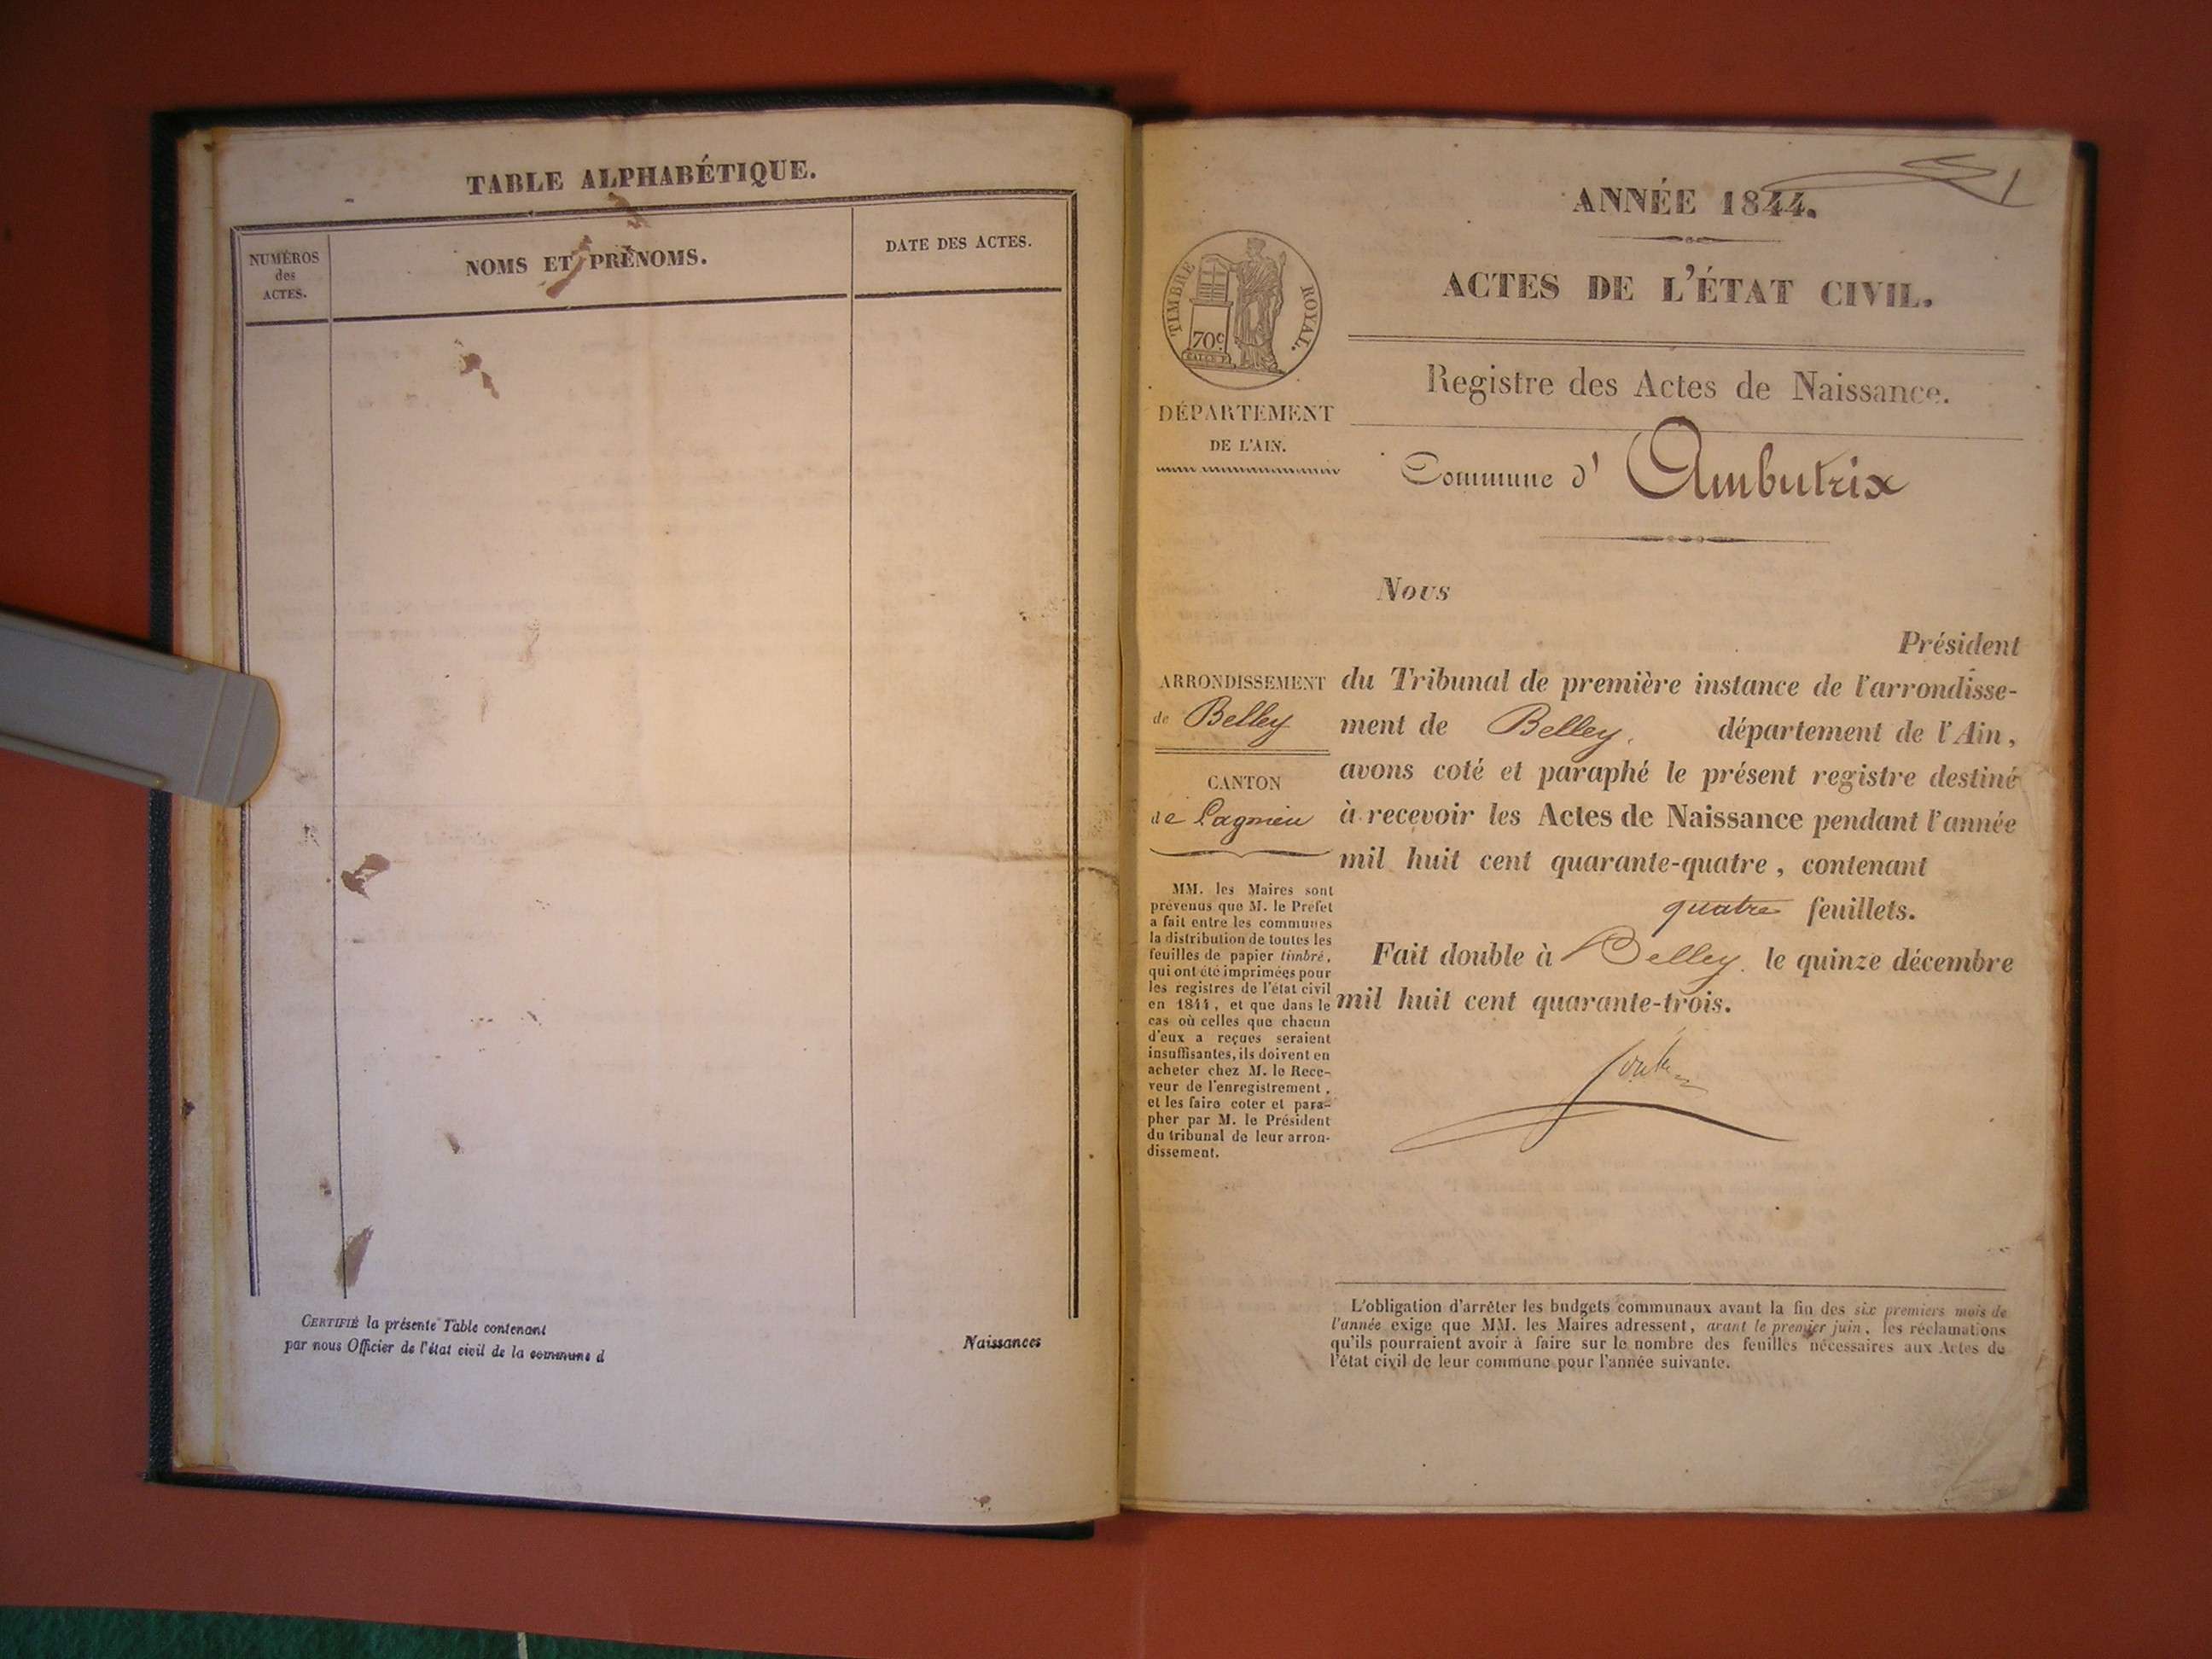 TABLE ALPHABÉTIQUE.
NUMÉROS
des
ACTES.
NOMS ET PRÉNOMS.
DATE DES ACTES.
CERTIFIÉ la présente Table contenant
Naissances
par nous Officier de l'état civil de la commune d
1
ANNÉE 1844.
ACTES DE L'ÉTAT CIVIL.
Registre des Actes de Naissance.
Commune d' Ambutrix
TIMBRE ROYAL.
70c
DÉPARTEMENT
DE L'AIN.
ARRONDISSEMENT
de Belley
CANTON
de Lagnieu
MM. les Maires sont
prévenus que M. le Préfet
a fait entre les communes
la distribution de toutes les
feuilles de papier timbré,
qui ont été imprimées pour
les registres de l'état civil
en 1844, et que dans le
cas où celles que chacun
d'eux a reçues seraient
insuffisantes, ils doivent en
acheter chez M. le Rece-
veur de l'enregistrement,
et les faire coter et para-
pher par M. le Président
du tribunal de leur arron-
dissement.
Nous
Président
du Tribunal de première instance de l'arrondisse-
ment de Belley, département de l'Ain,
avons coté et paraphé le présent registre destiné
à recevoir les Actes de Naissance pendant l'année
mil huit cent quarante-quatre, contenant
quatre feuillets.
Fait double à Belley, le quinze décembre
mil huit cent quarante-trois.
L'obligation d'arrêter les budgets communaux avant la fin des six premiers mois de
l'année exige que MM. les Maires adressent, avant le premier juin, les réclamations
qu'ils pourraient avoir à faire sur le nombre des feuilles nécessaires aux Actes de
l'état civil de leur commune pour l'année suivante.